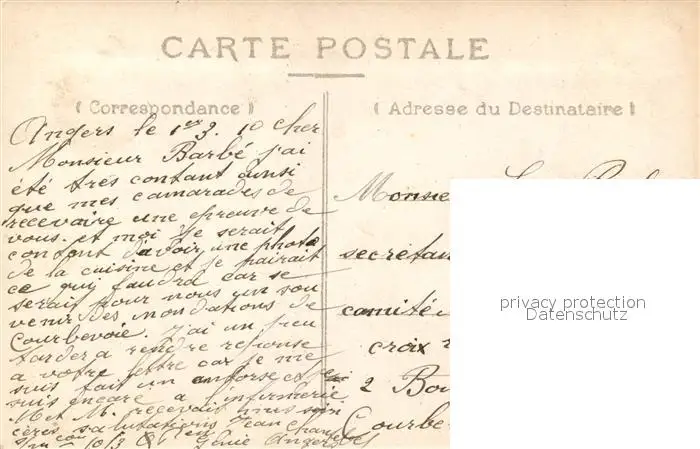 CARTE POSTALE
( Correspondance )
( Adresse du Destinataire )
Angers le 1er 3. 10 cher
Monsieur Barbé j'ai
été très contant ainsi
que mes camarades de
recevaire une epreuve de
vous. et moi je serait
contant d'avoir une photo
de la cuisine et je pairait
ce qui faudra car se
serait pour nous un sou
venir des inondations de
Courbevoie. j'ai un peu
tarder a rendre reponse
a votre lettre car je me
suis fait un amforse et je
suis encore a l'infirmerie
M et M. recevait mes sin
cères salutations Jean
10/3 Génie Angers
secrétan
camité
croix
2 Bou
Courbe
privacy protection
Datenschutz